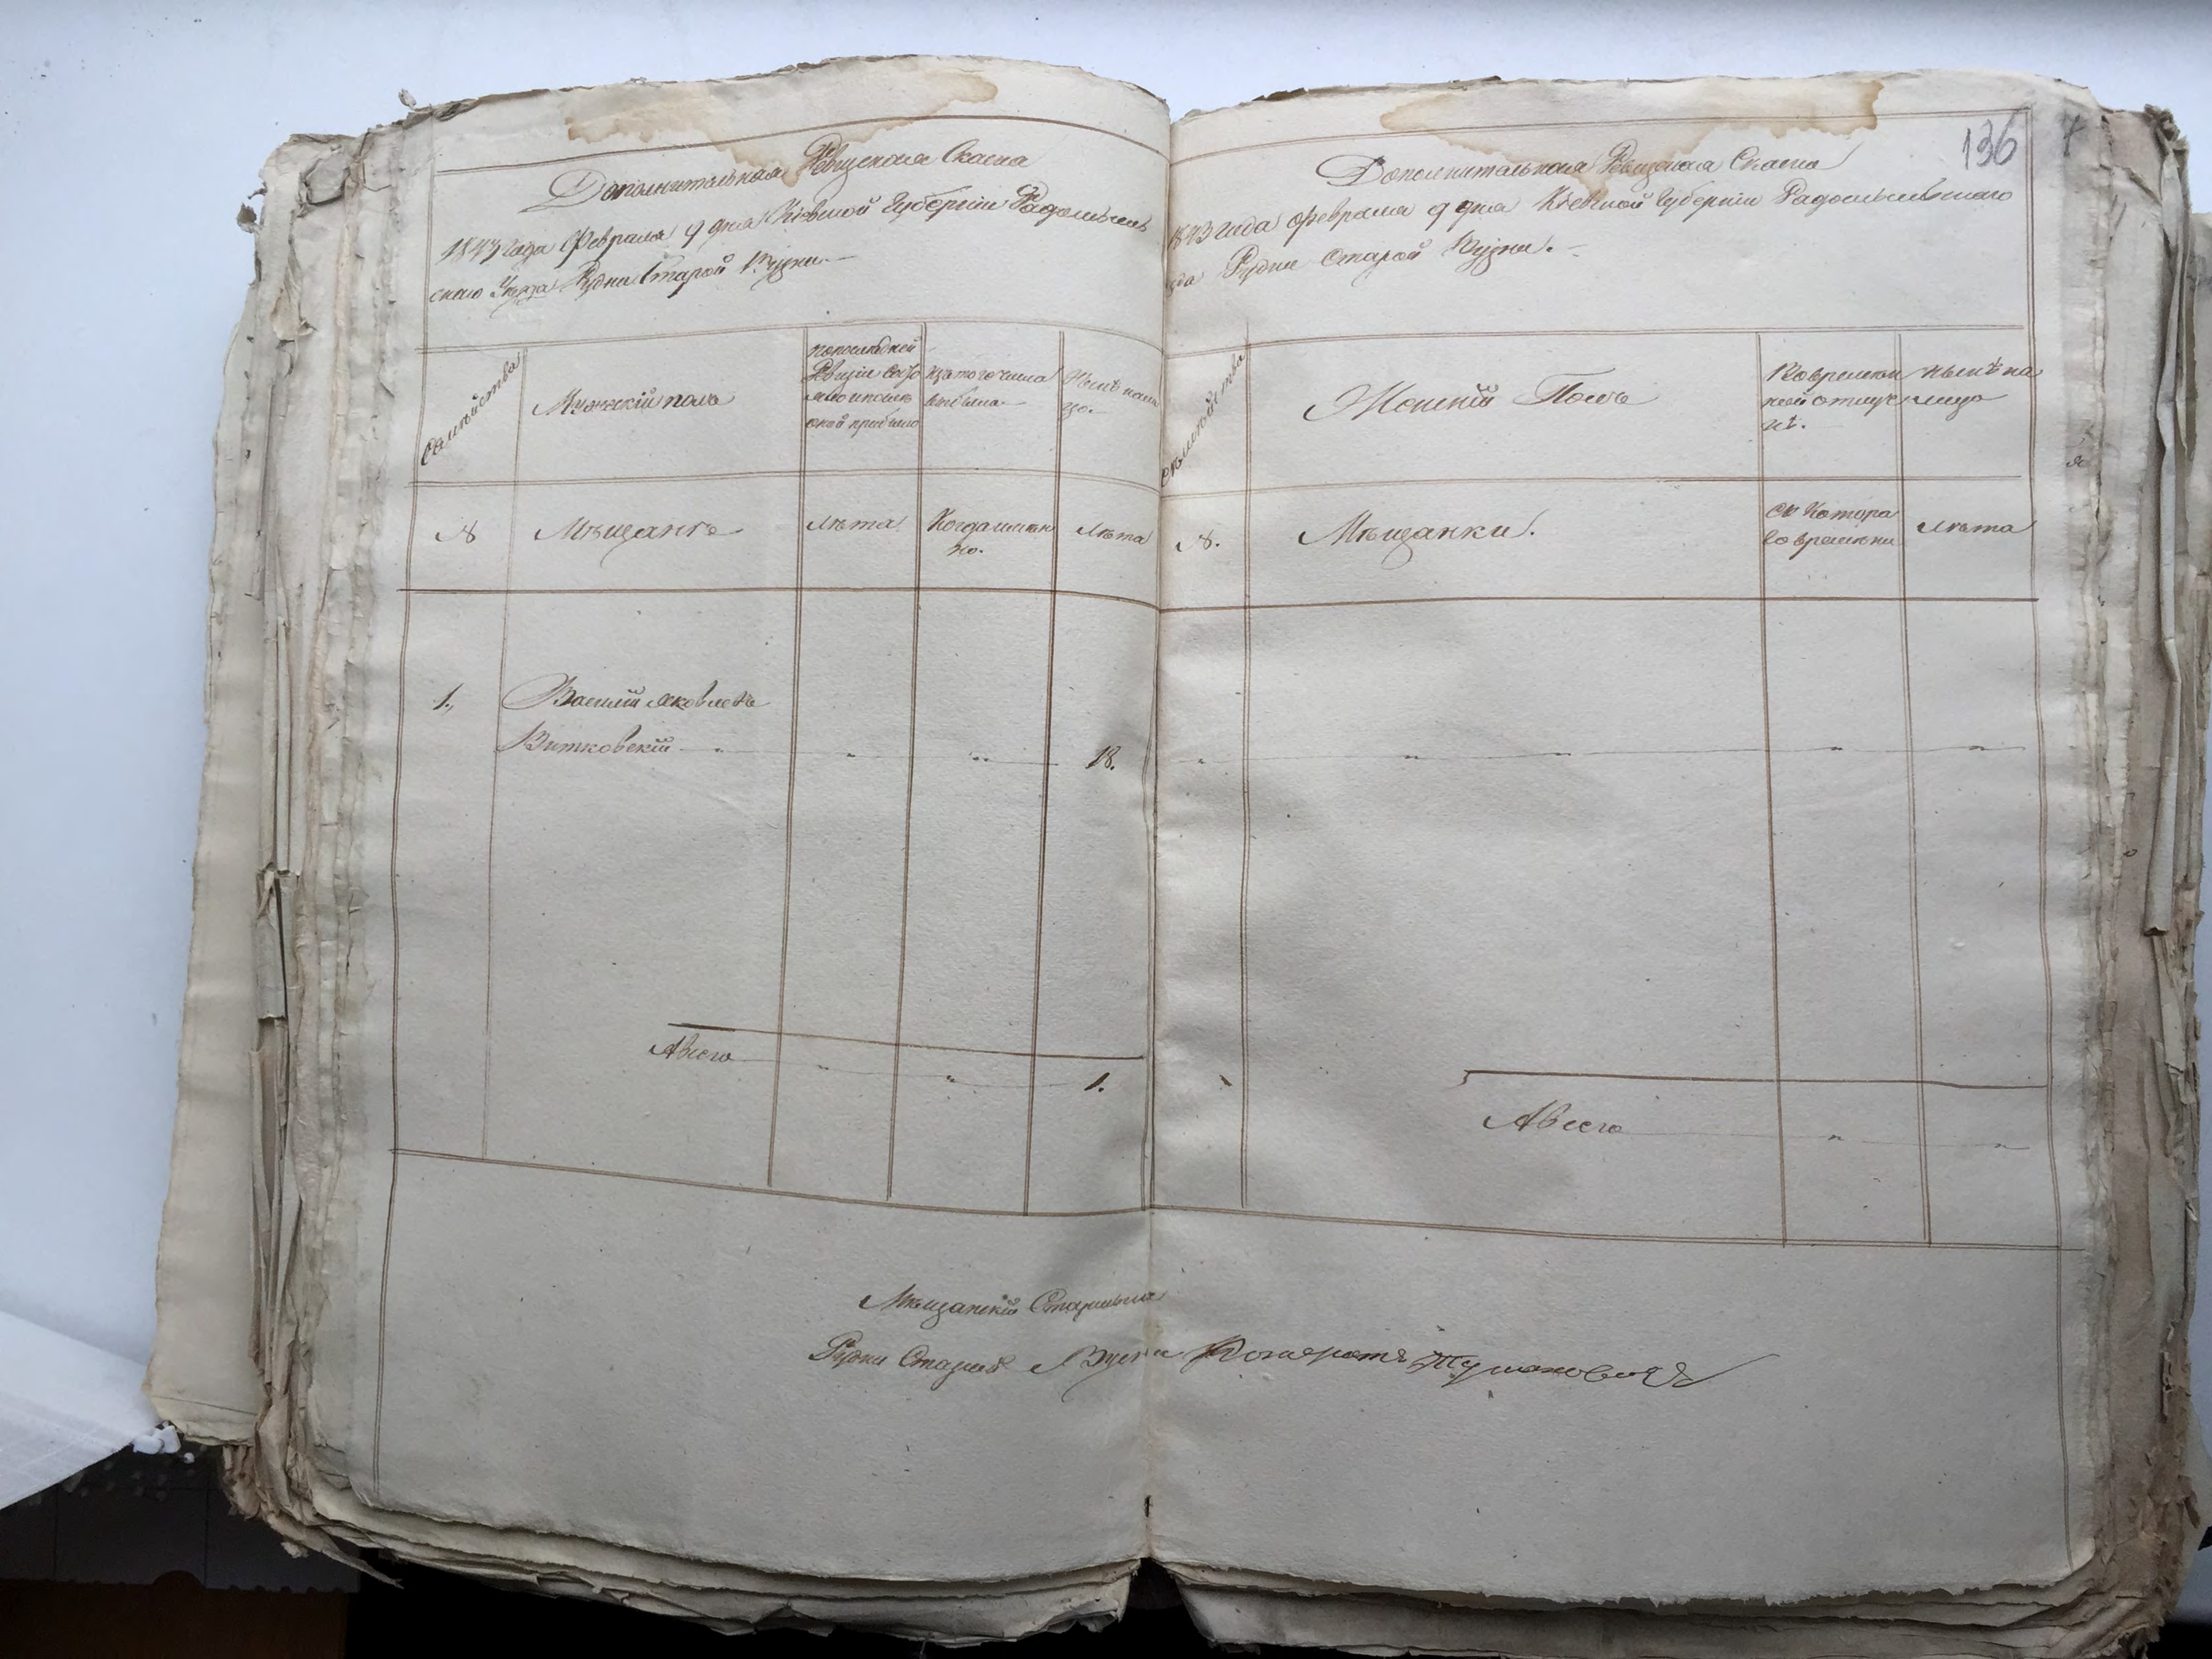 Дополнительная Ревизская Сказка
1843 года Февраля 9 дня Кіевской Губерніи Радомысль
скаго Уѣзда Рудни Старой Буды.
Семѣйства
Мужескій полъ
попослѣдней
Ревизіи состо
яло и послѣ
оной прибыло
изъ того числа
выбыло.
Нынѣ на ли
цо.
№
Мѣщане
Лѣта
Когда имян
но.
Лѣта
1.,
Василій Яковлевъ
Витковскій
18.
А всего
1.
136
Дополнительная Ревизская Сказка
1843 года Февраля 9 дня Кіевской Губерніи Радомысльскаго
зда Рудни Старой
Семѣйства
Женскій Полъ
Во времян
ной отлуч
кѣ.
нынѣ на
лицо
№.
Мѣщанки.
Съ Котора
го времѣни
Лѣта
А всего
Мѣщанскій Старшина
Рудни Старой